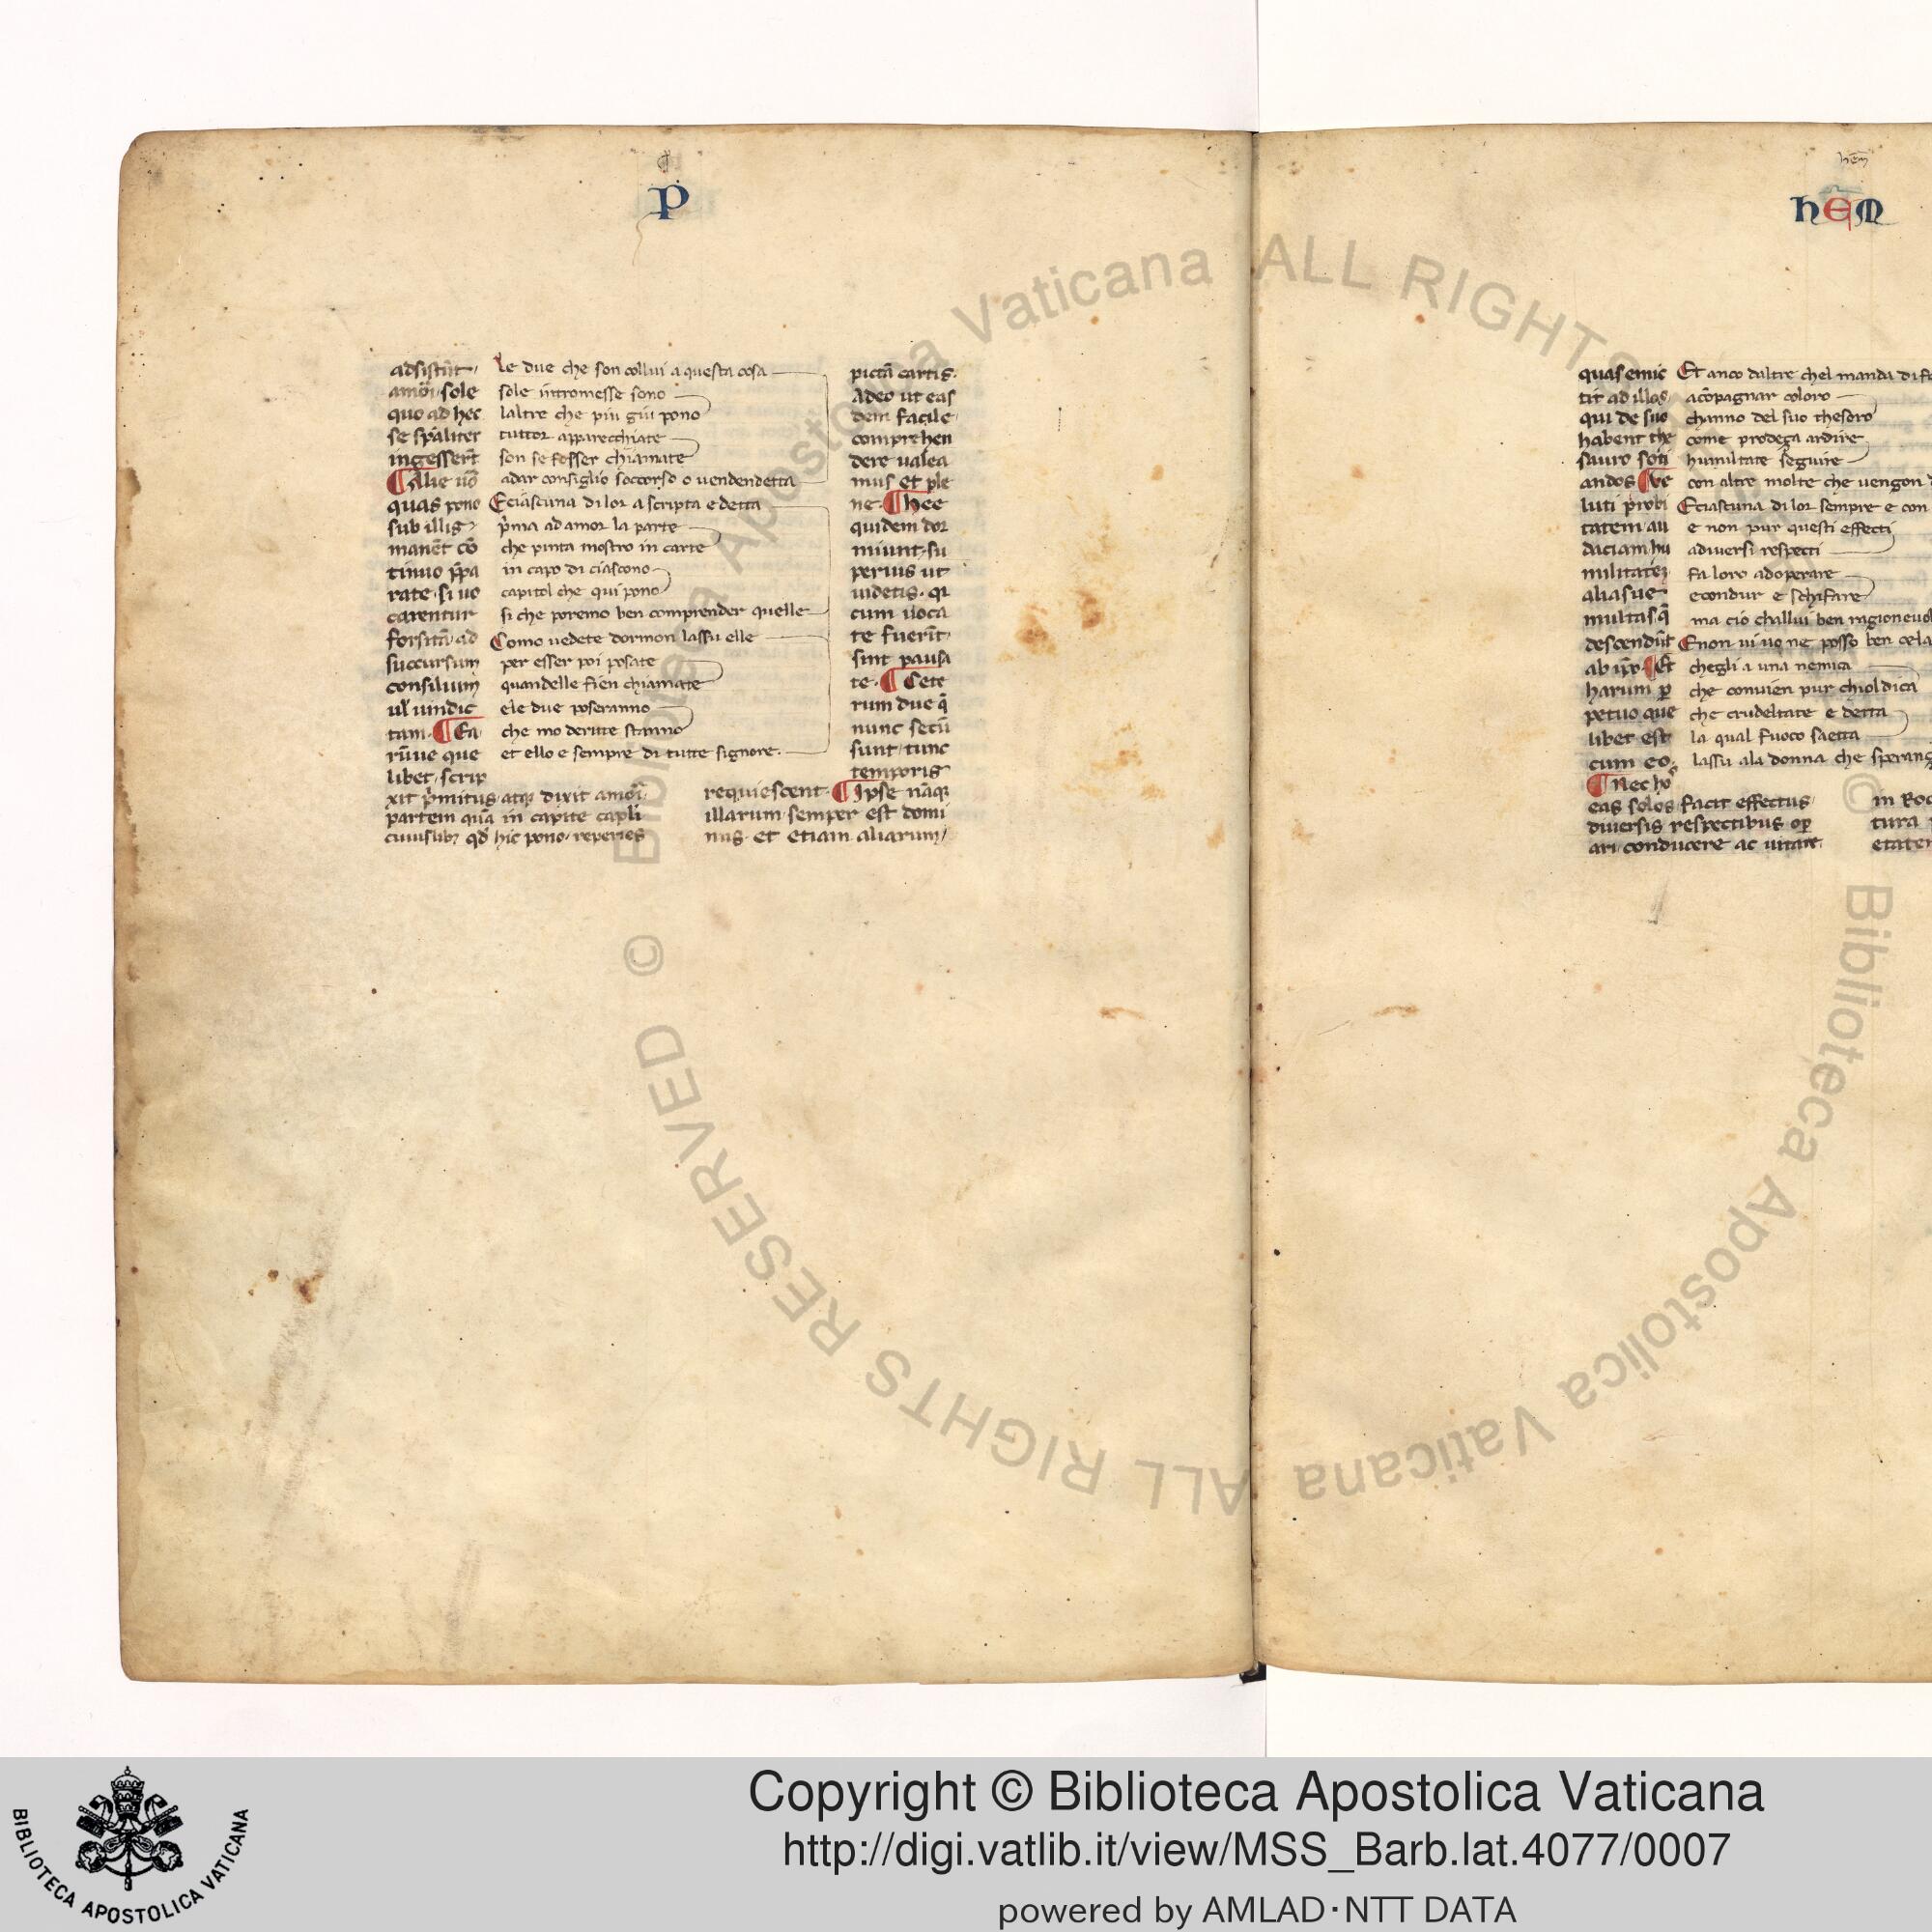 P
adsistūt·
amōī·sole
quo ad hec
se spāliter
ingesserīt
¶Alie uō
quas pono
sub illis
manēt cō
tinuo p̄pa
rate·si uo
carentur
forsitā·ad
succursum
consilium
ul' uindic
tam·¶Ea
rūue que
libet·scrip
xit p̄mitus·atq; dixit amōī·
partem quā in capite capli
cuiuslibꝫ qd' hic pono·reperies
Le due che son collui a questa cosa
sole intromesse sono
laltre che piu giu pono
tuttor apparecchiate
son se fosser chiamate
adar consiglio soccorso o uendendetta
Eciascuna di lor a scripta e detta
p̄ma ad amor la parte
che pinta mostro in carte
in capo di ciascono
capitol che qui pono
si che poremo ben comprender quelle
Como uedete dormon lassu elle
per esser poi posate
quandelle fien chiamate
ele due poseranno
che mo deritte stanno
et ello e sempre di tutte signore·
pictā cartis·
Adeo ut eas
dem facile·
comprehen
dere ualea
mus et ple
ne·¶hee
quidem dor
miunt·su
perius ut
uidetis·qr
cum uoca
te fuerīt·
sint pausa
te·¶Cete
rum due q̄
nunc secū
sunt·tunc
temporis
requiescent·¶Ipse nāqꝫ
illarum semper est domi
nus·et etiam aliarum/
hēm
hēM
quas emic
tit ad illos·
qui de suo
habent the
sauro soti
andos ¶ve
luti probi
tatem·au
daciam·hu
militatē
aliasue
multas·q̄
descendūt
ab ip̄o·¶Et
harum p
petuo que
libet est
cum eo·
¶Nec hos
eas solos·facit effectus·
diuersis respectibus op
ari·conducere ac uitare·
Et anco daltre chel manda di f
acōpagnar coloro
channo del suo thesoro
come prodeça ardire
humiltate seguire
con altre molte che uengon
Eciascuna di lor sempre e con
e non pur questi effecti
adiuersi respecti
fa loro adoperare
econdur e schifare
ma cio challui ben ragioneuol
Enon ui uo ne posso ben cela
chegli a una nemica
che conuien pur chiol dica
che crudeltate e detta
la qual fuoco saetta
lassu ala donna che sperang
in Roc
tura
etater
© Biblioteca Apostolica Vaticana ALL RIGHTS RESERVED
© Biblioteca Apostolica Vaticana ALL RIGHTS
BIBLIOTECA APOSTOLICA VATICANA
Copyright © Biblioteca Apostolica Vaticana
http://digi.vatlib.it/view/MSS_Barb.lat.4077/0007
powered by AMLAD·NTT DATA